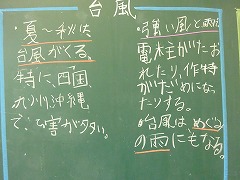 台風
・夏～秋は
台風がくる。
特に、四国、
九州沖縄
で、ひ害が多い。
・強い風と雨
電柱がたお
れたり、作物
がだめになっ
たりする。
・台風は めぐみ
の雨にもなる。